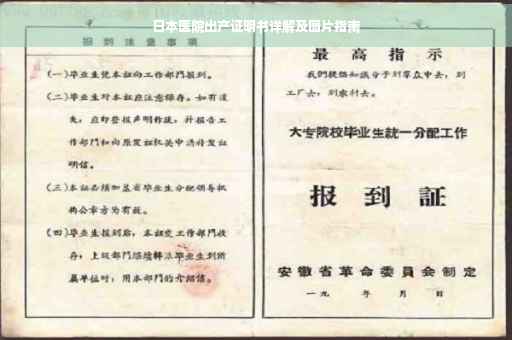 日本医院出产证明书详解及图片指南
报到注意事项
(一)毕业生凭本证向工作部門报到。
(二)毕业生对本证应注意保存。如有遗
失,应即登报声明作废,并报告工
作部門和向原发证机关申請补发证
明信。
(三)本证必须加盖省毕业生分配领导机
构公章方为有效。
(四)毕业生报到后,本证交工作部門收
存;上级部門
毕业生到所
属单位时,用本部門的介绍信。
最高指示
我們提倡知識分子到羣众中去,到
工厂去,到农村去。
大专院校毕业生統一分配工作
报到証
安徽省革命委員会制定
一九 年 月 日